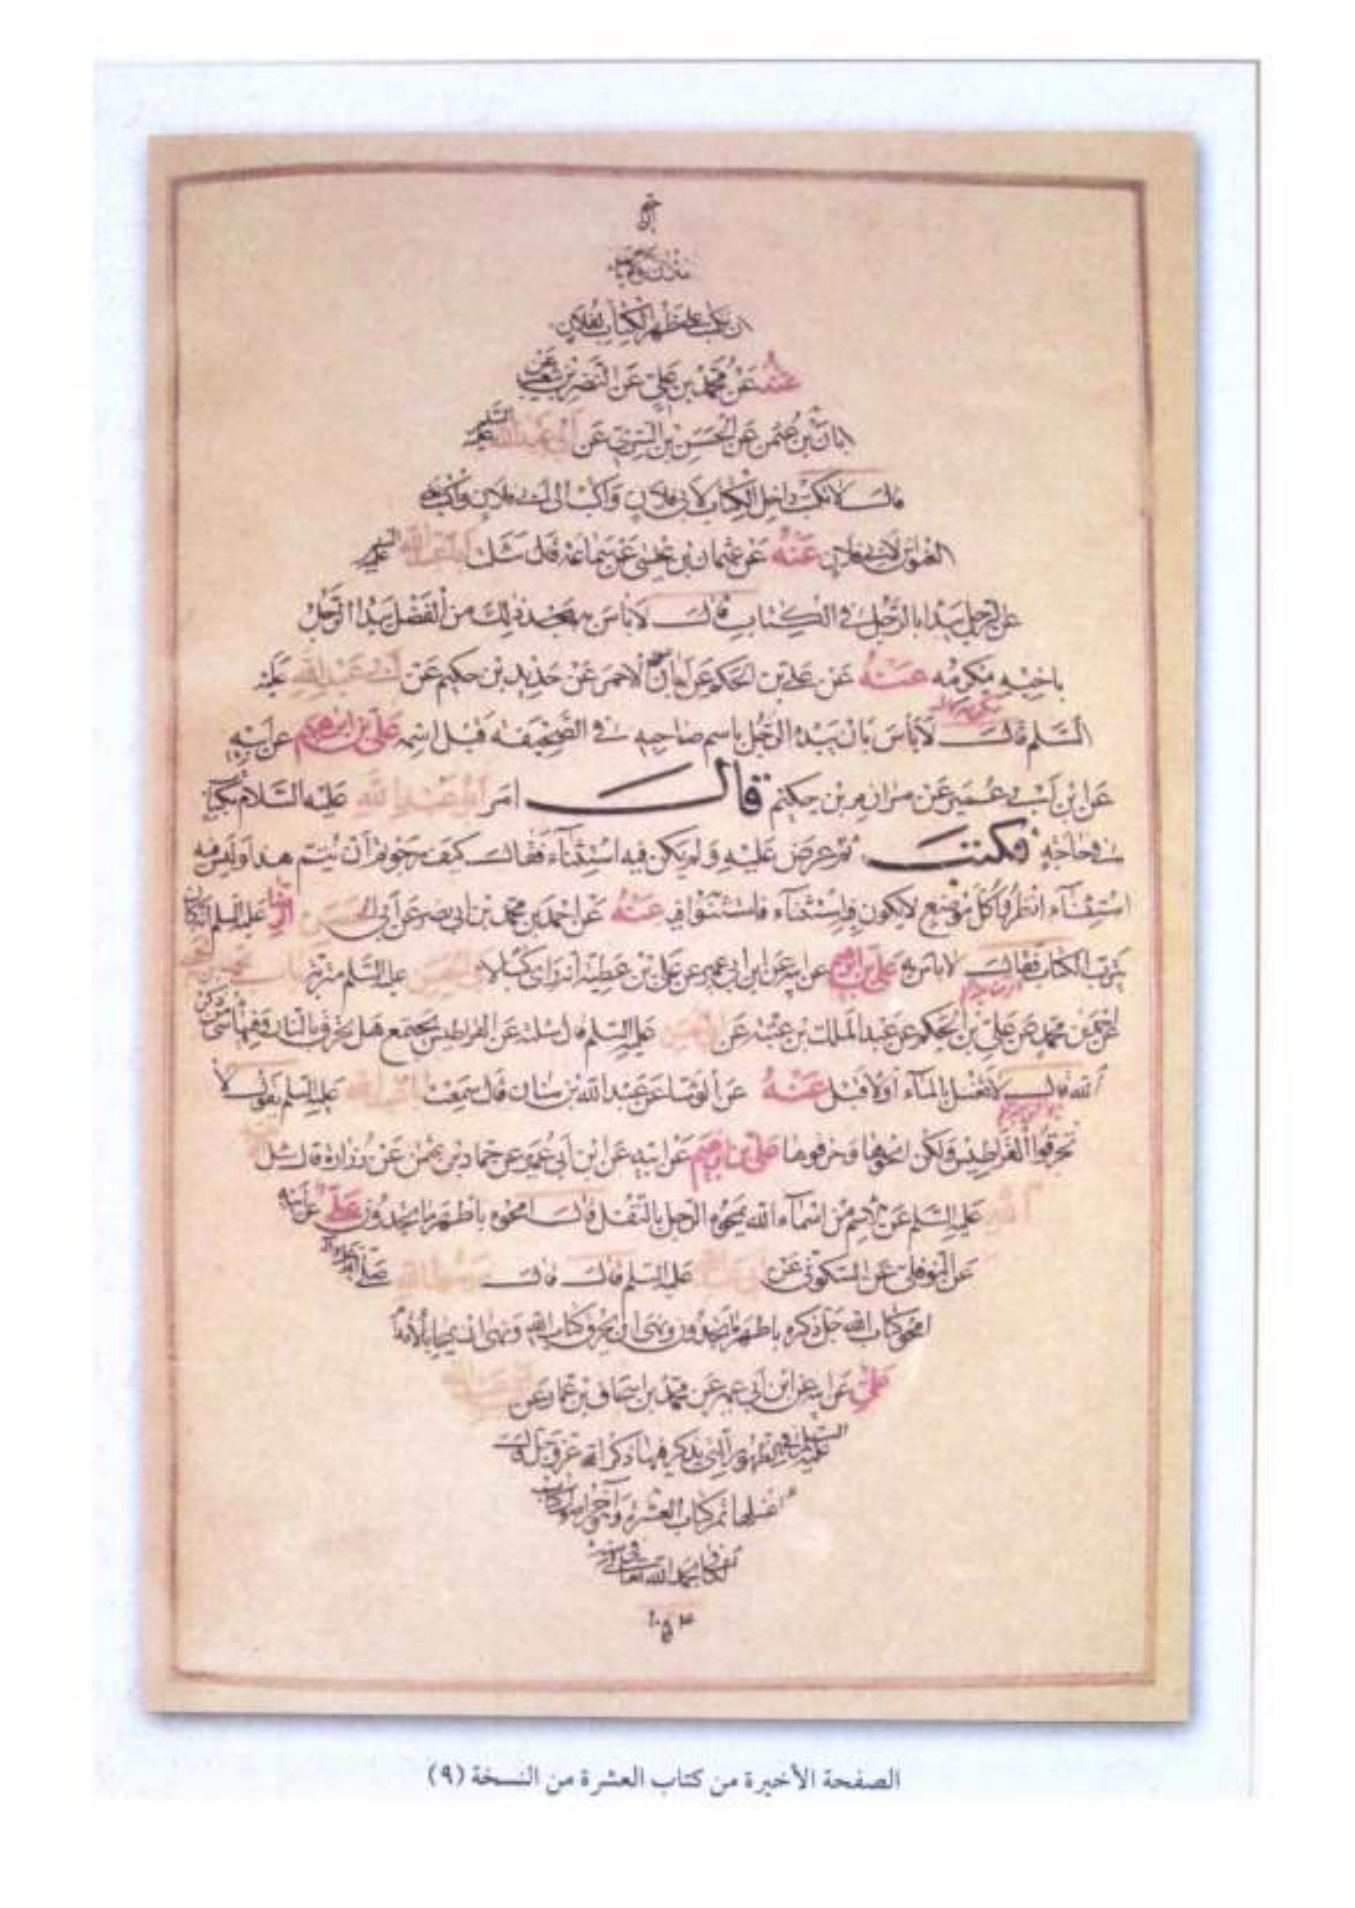 ان يكتب على ظهر الكتاب لفلان
عنه عن محمد بن علي عن النضر بن شعيب عن
ابان بن عثمن عن الحسن بن السري عن أبي عبدالله عليه السلم
قال لا تكتب داخل الكتاب لابي فلان واكتب الى ابي فلان واكتب على
العنوان لابي فلان عنه عن عثمان بن عيسى عن سماعة قال سئلت ابا عبدالله عليه السلم
عن الرجل يبدا بالرجل في الكتاب قال لا باس به ذلك من الفضل يبدا الرجل
باخيه يكرمه عنه عن علي بن الحكم عن ابان الاحمر عن حديد بن حكيم عن أبي عبدالله عليه
السلم قال لا باس بان يبدء الرجل باسم صاحبه في الصحيفة قبل اسمه علي بن ابرهيم عن ابيه
عن ابن أبي عمير عن مرازم بن حكيم قال امر أبو عبدالله عليه السلام بكتاب
في حاجة فكتب ثم عرض عليه ولم يكن فيه استثناء فقال كيف رجوتم أن يتم هذا وليس فيه
استثناء انظروا كل موضع لا يكون فيه استثناء فاستثنوا فيه عنه عن احمد بن محمد بن ابي نصر عن أبي الحسن الرضا عليه السلم
يترب الكتاب فقال لا باس به علي بن ابرهيم عن ابيه عن ابن ابي عمير عن علي بن عطية أنه راى كتبا لابي الحسن عليه السلم متربة
بن محمد عن علي بن الحكم عن عبد الملك بن عتبة عن ابي الحسن عليه السلم قال سئلته عن القراطيس تجتمع هل تحرق بالنار وفيها شيء من ذكر
الله قال لا تغسل بالماء اولا قبل عنه عن الوشا عن عبد الله بن سنان قال سمعت ابا عبدالله عليه السلم يقول لا
تحرقوا القراطيس ولكن امحوها وحرقوها علي بن ابرهيم عن ابيه عن ابن أبي عمير عن حماد بن عثمن عن زرارة قال سئل
عليه السلم عن الاسم من اسماء الله يمحوه الرجل بالتفل قال امحوه باطهر ما تجدون علي عن ابيه
عن النوفلي عن السكوني عن ابي عبدالله عليه السلم قال قال رسول الله صلى الله عليه وآله
امحوا كتاب الله جل ذكره باطهر ما تجدون ونهى ان يحرق كتاب الله ونهى ان يمحا بالاقلام
علي عن ابيه عن ابن أبي عمير عن محمد بن اسحاق بن عمار عن
عليه السلم في الظهور التي يذكر فيها ذكر الله عز وجل قال
اغسلها تم كتاب العشرة
بحمد الله تعالى
١٠٥٣
الصفحة الأخيرة من كتاب العشرة من النسخة (٩)